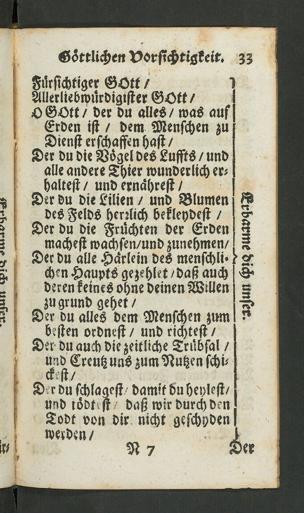 Göttlichen Vorsichtigkeit. 33
Fürsichtiger GOtt /
Allerliebwürdigister GOtt /
O GOtt / der du alles / was auf
Erden ist / dem Menschen zu
Dienst erschaffen hast /
Der du die Vögel des Luffts / und
alle andere Thier wunderlich er-
haltest / und ernährest /
Der du die Lilien / und Blumen
des Felds herzlich bekleydest /
Der du die Früchten der Erden
machest wachsen / und zunehmen /
Der du alle Härlein des menschli-
chen Haupts gezehlet / daß auch
deren keines ohne deinen Willen
zu grund gehet /
Der du alles dem Menschen zum
besten ordnest / und richtest /
Der du auch die zeitliche Trübsal /
und Creutz uns zum Nutzen schi-
ckest /
Der du schlagest / damit du heylest /
und tödtest / daß wir durch den
Todt von dir nicht geschyden
werden /
Erbarme dich unser.
N 7 Der
Erbarme dich unser.